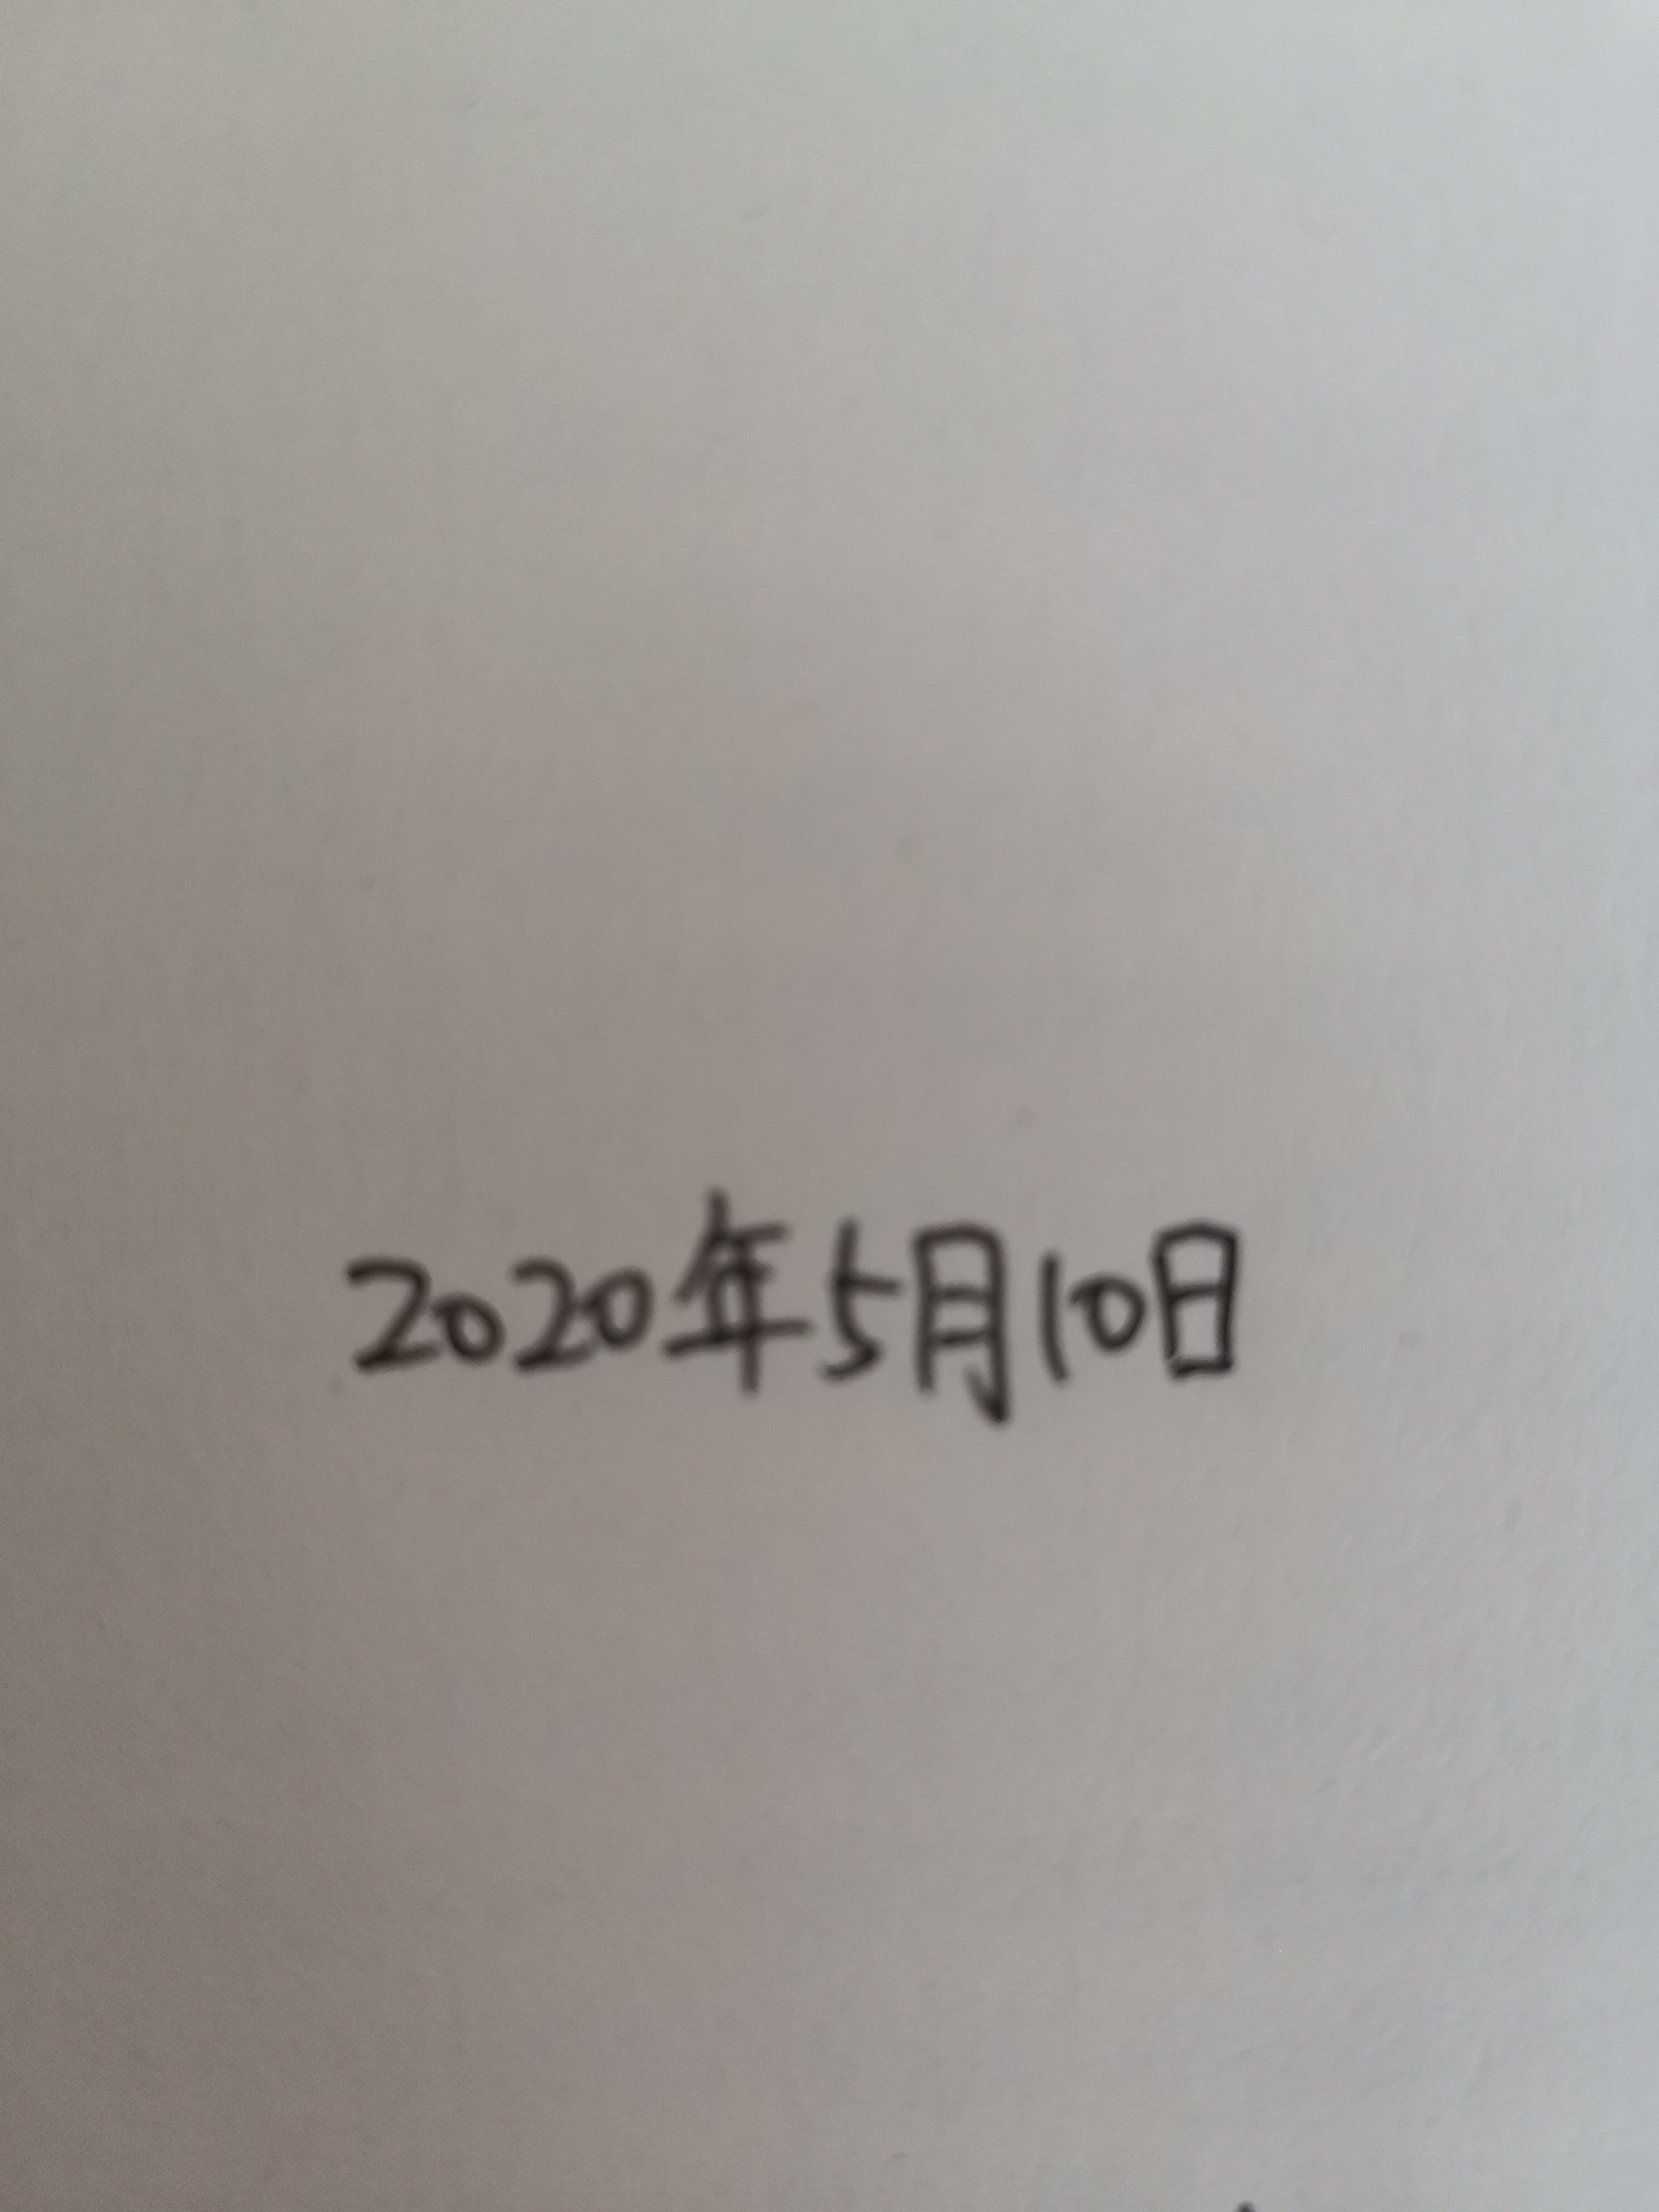 2020年5月10日